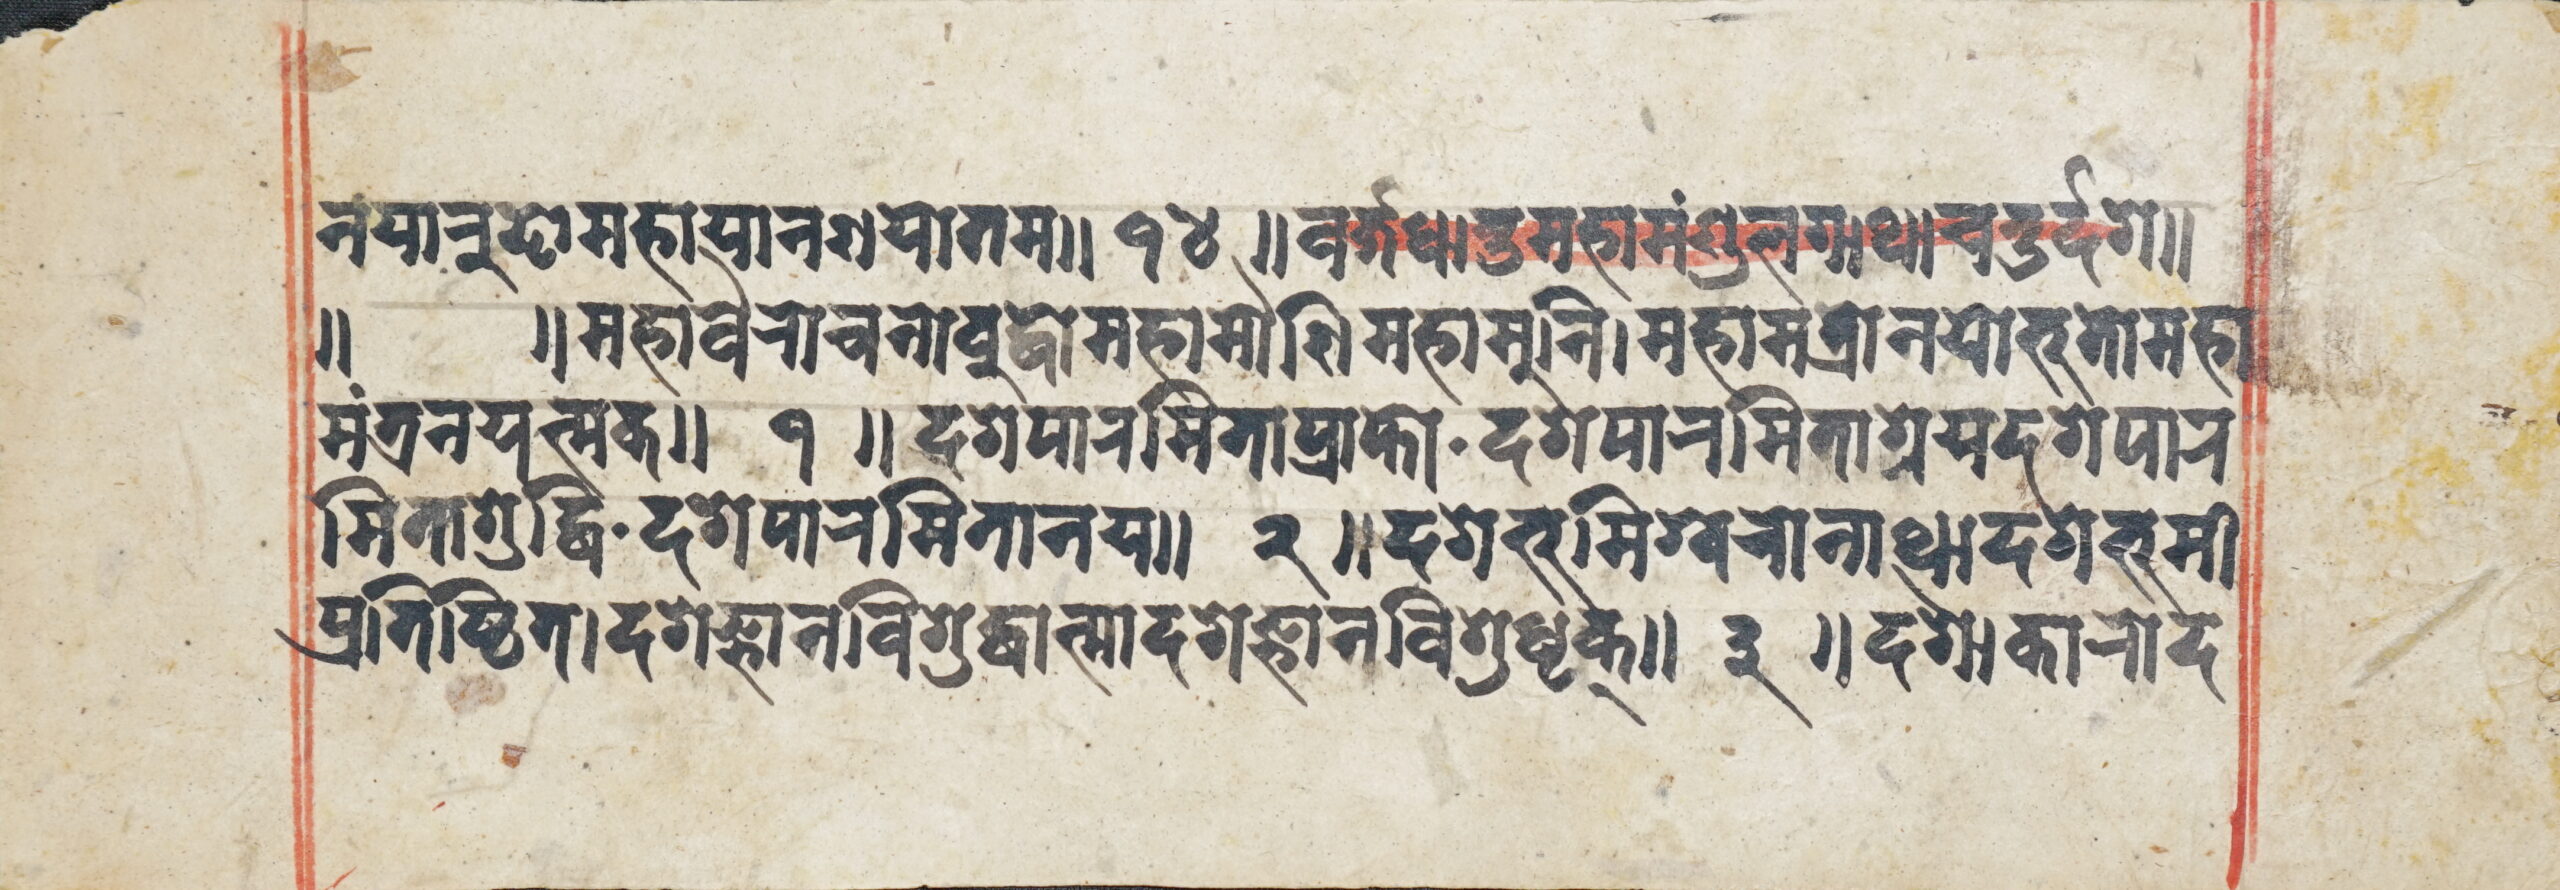 नयानुढो महायानशयोतम॥ १४ ॥ वर्ज्रधातुमहामंण्डुलगाथाचतुर्दशे॥
॥ ॥ महावैरोचनोबुद्धोमहामौशिमहामुनि। महामत्रोनयोद्भूतोमहा
मंत्रनयत्मक॥ १ ॥ दशेपारमिताप्राप्तो· दशेपारमिताश्रयदशेपार
मिताशुद्धि· दशेपारमितानय॥ २ ॥ दशेभूमिश्वरोनाथादशेभूमी
प्रतिष्ठित। दशेज्ञानविशुद्धात्मादशेज्ञानविशुधृक्॥ ३ ॥ दशोकारोद